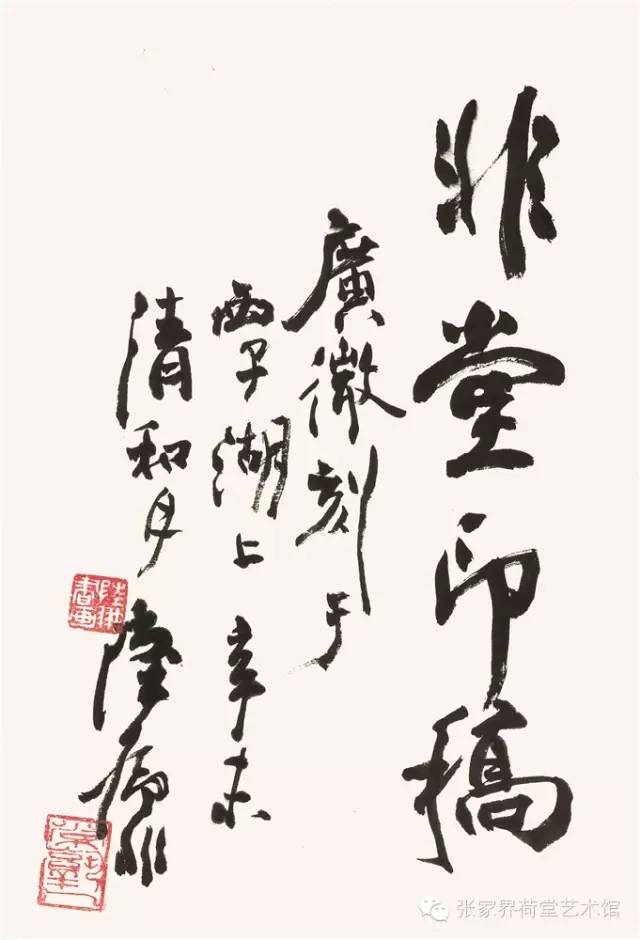 非堂印稿
廣微刻于
西子湖上辛未
清和月陸抑非
张家界荷堂艺术馆